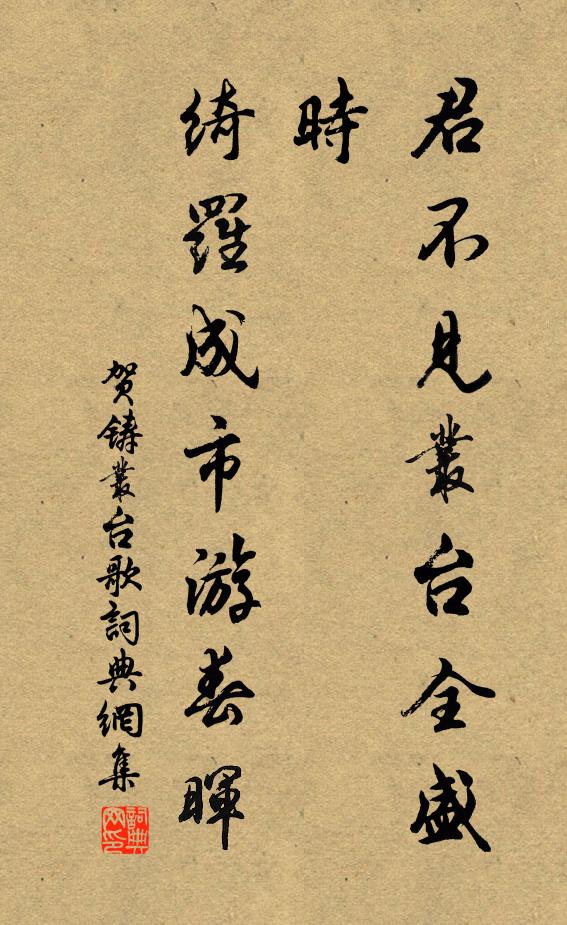 君不見叢台全盛
時
綺羅成市游春暉
贺鑄叢台歌詞典網集
詞典
网印